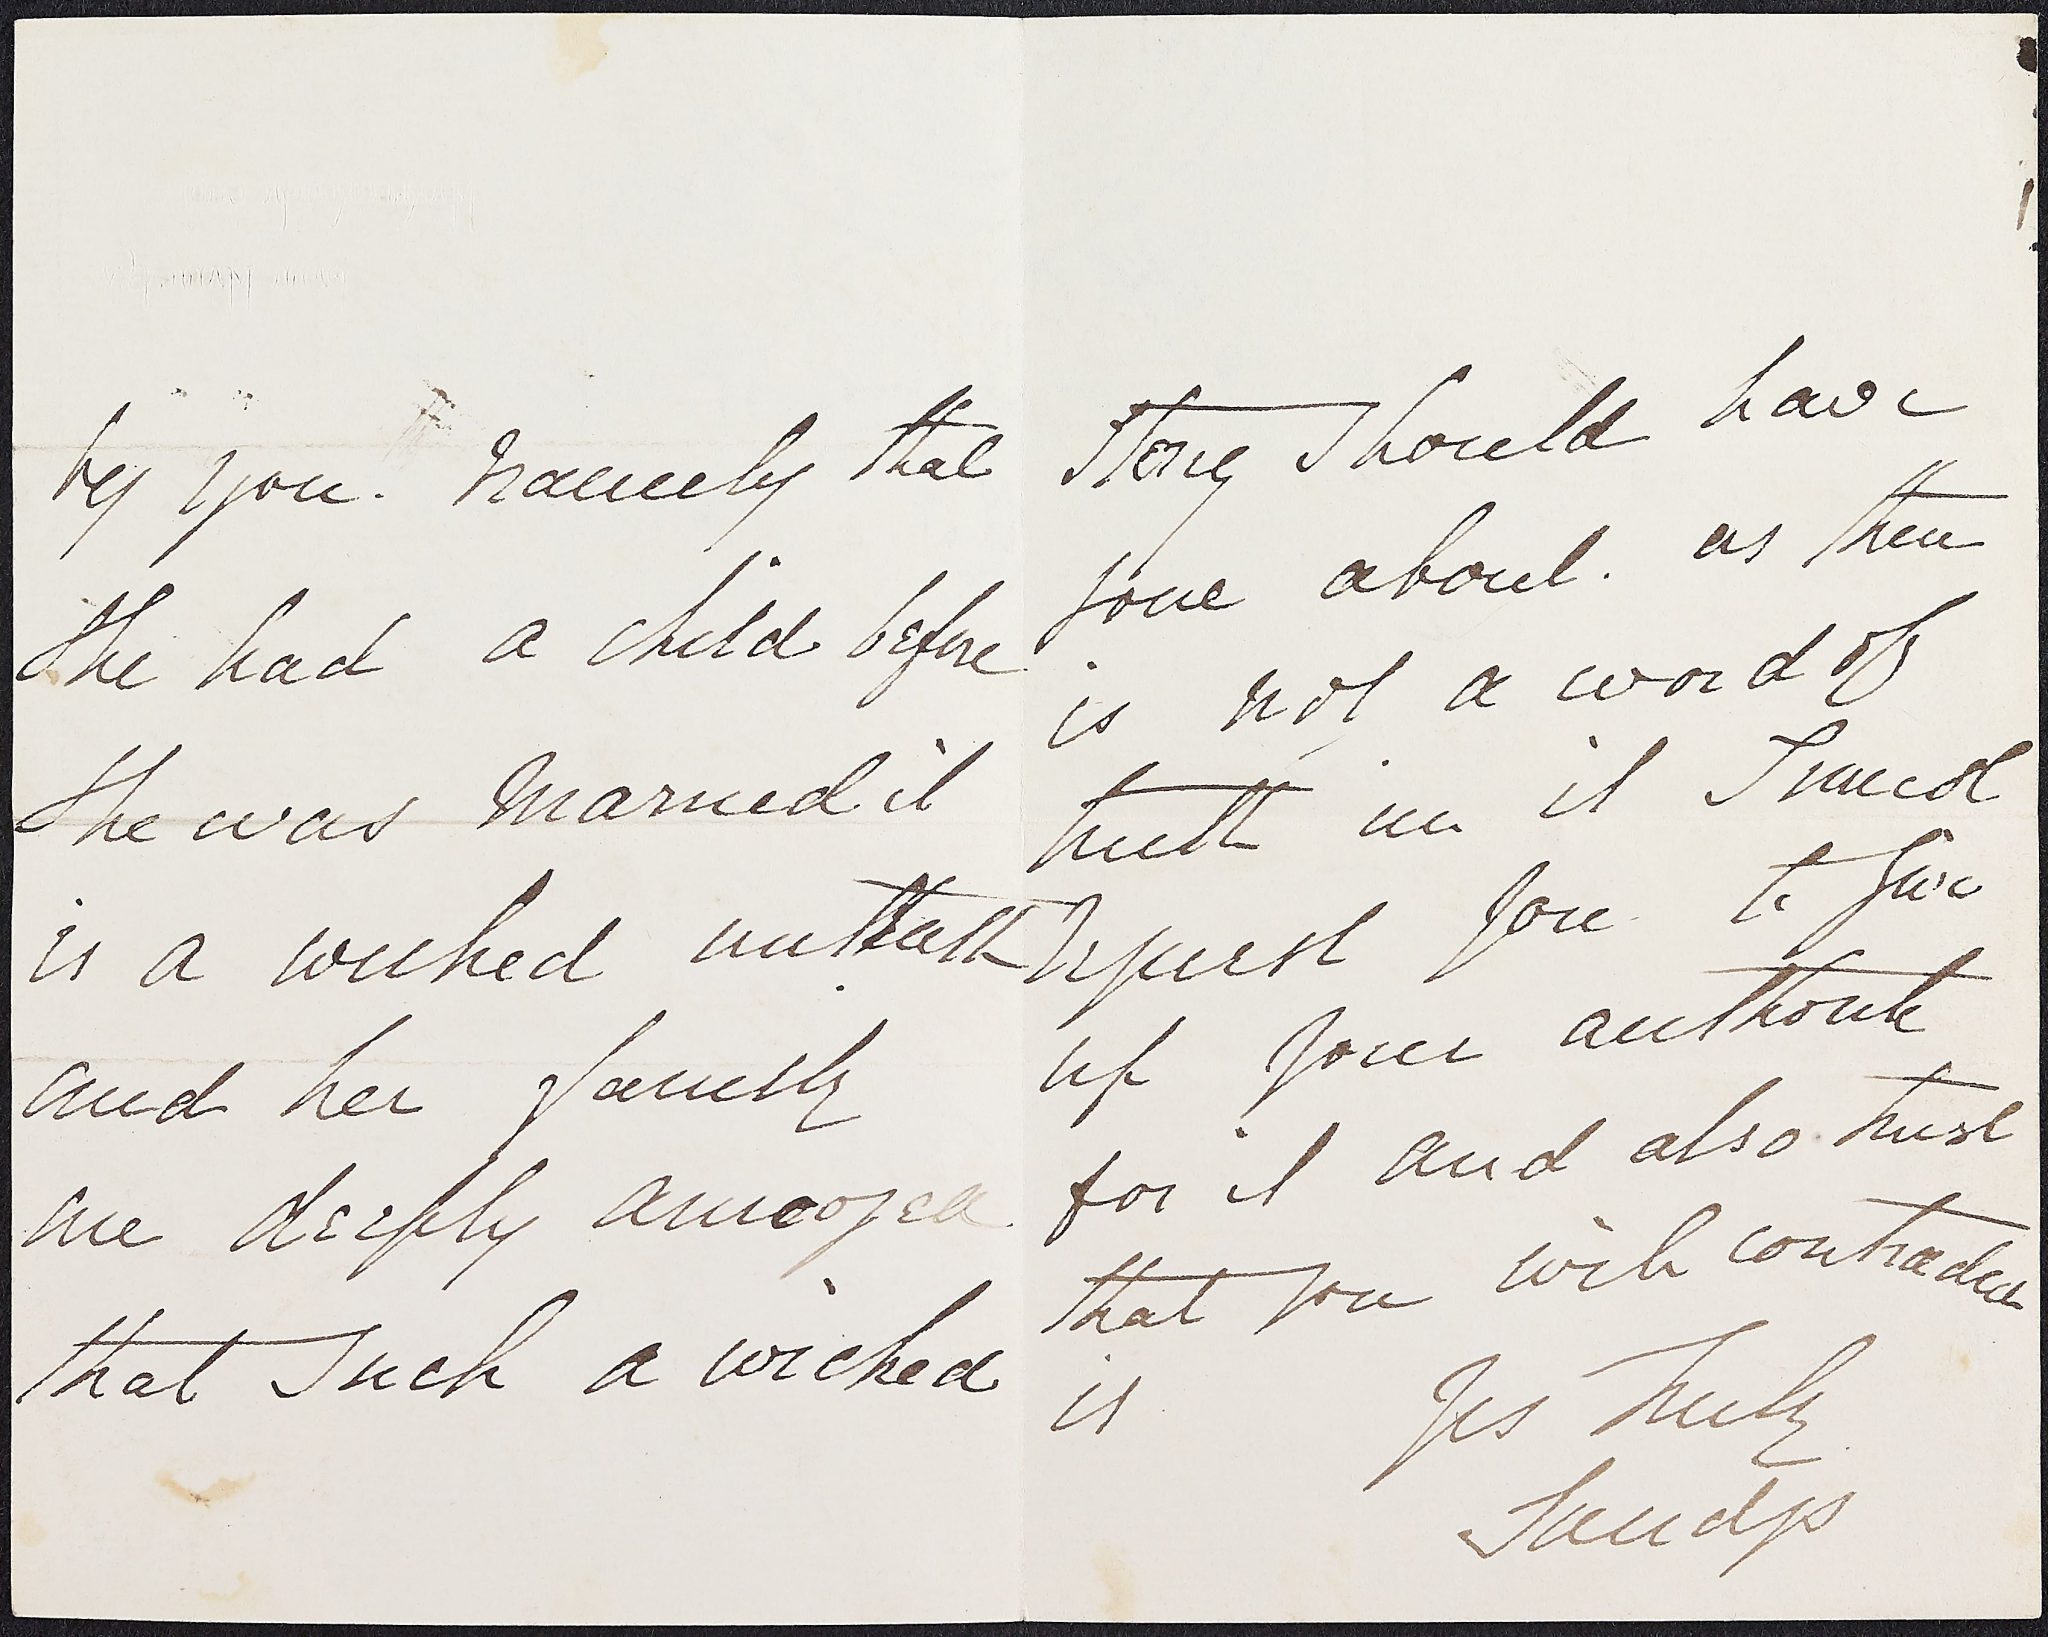 by you. namely that
she had a child before
she was married it
is a wicked untruth
and her family
are deeply annoyed
that such a wicked
story should have
gone about. as there
is not a word of
truth in it I must
request you to give
up your authority
for it and also trust
that you will contradict
is Yrs truly
Sandys